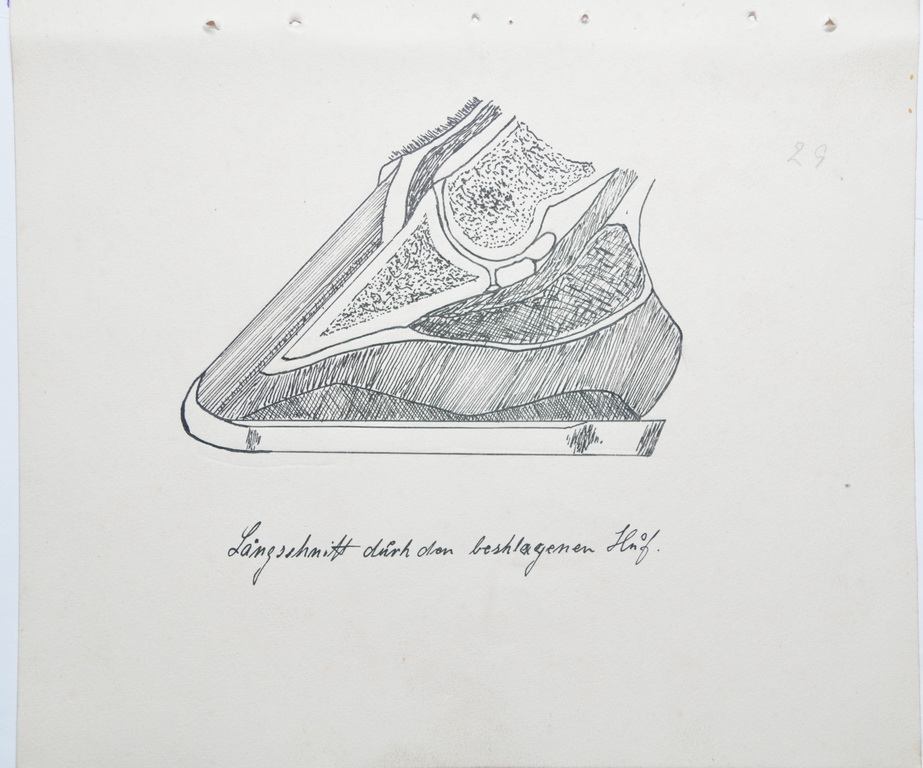 29
Längsschnitt durch den beschlagenen Huf.